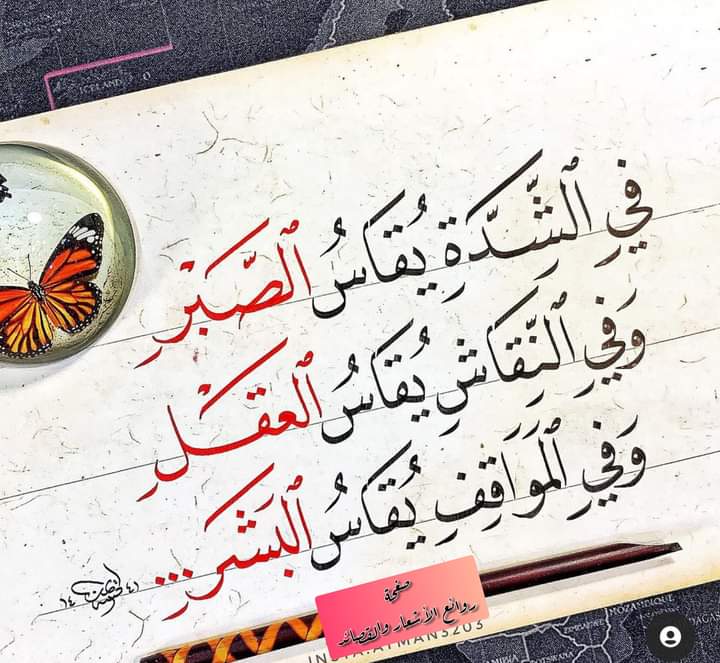 ICELAND
فِي ٱلشِّدَّةِ يُقَاسُ ٱلصَّبْرِ
وَفِي ٱلنِّقَاشِ يُقَاسُ ٱلعَقْلِ
وَفِي ٱلْمَوَاقِفِ يُقَاسُ ٱلْبَشَرِ...
صفحة
روائع الأشعار والقصائد
MOZAMBIQUE